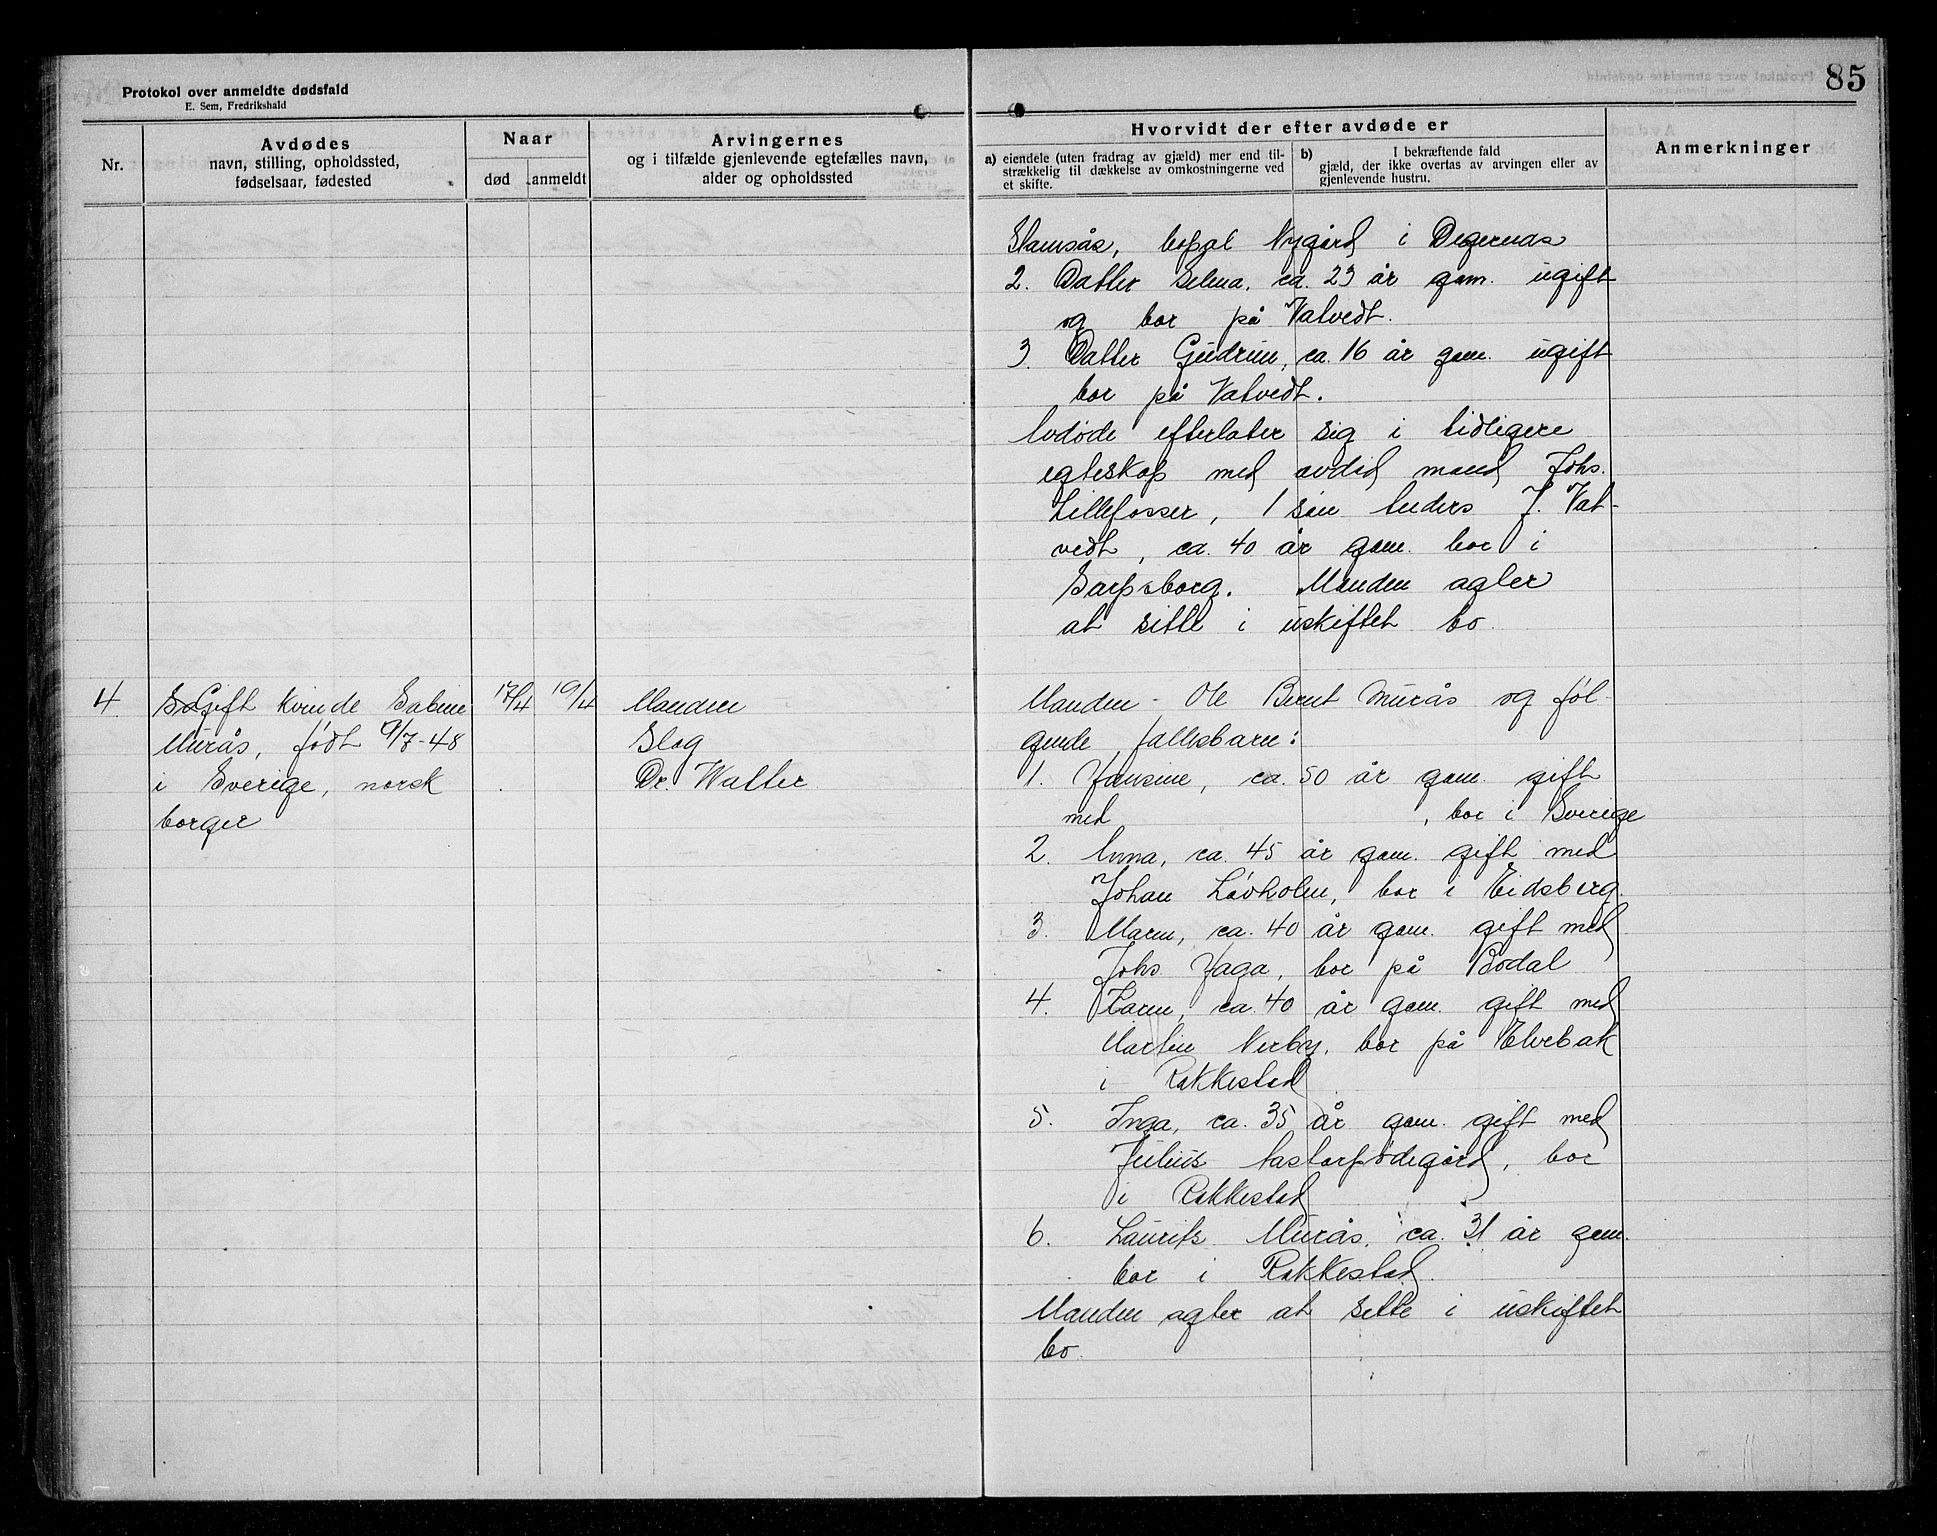 Protokol over anmeldte dødsfald
E. Sem, Fredrikshald
85
Nr.
Avdødes
navn, stilling, opholdssted,
fødselsaar, fødested
Naar
død
anmeldt
Arvingernes
og i tilfælde gjenlevende egtefælles navn,
alder og opholdssted
Hvorvidt der efter avdøde er
a) eiendele (uten fradrag av gjæld) mer end til-
strækkelig til dækkelse av omkostningerne ved
et skifte.
b) I bekræftende fald
gjæld, der ikke overtas av arvingen eller av
gjenlevende hustru.
Anmerkninger
bopæl Nygård i Degernæs
2. Datter Selma, ca. 23 år gam. ugift
og bor på Vatvedt.
3 Datter Gudrun, ca. 16 år gam. ugift
bor på Vatvedt.
Avdøde efterlater sig i tidligere
egteskap med avdød mand Johs.
Lillefosser, 1 søn Anders J. Vat-
vedt, ca. 40 år gam. bor i
Sarpsborg. Manden agter
at sitte i uskiftet bo.
4
Gift kvinde Sabine
Murås, født 9/7-48
i Sverige, norsk
borger
17/4
19/4
Manden
Slag
Dr. Walter
Manden - Ole Bernt Murås og føl-
gende fællesbarn:
1. Jansine, ca. 50 år gam. gift
med , bor i Sverige
2. Anna, ca. 45 år gam. gift med
Johan Løvholm, bor i Eidsberg.
3. Maren, ca. 40 år gam. gift med
Johs Haga, bor på Bødal
4. Karen, ca. 40 år gam. gift med
Martin Nerby, bor på Elvebak
i Rakkestad
5. Inga, ca. 35 år gam. gift med
Julius Aastorpødegård, bor
i Rakkestad
6. Laurits Murås, ca. 31 år gam.
bor i Rakkestad.
Manden agter at sitte i uskiftet
bo.